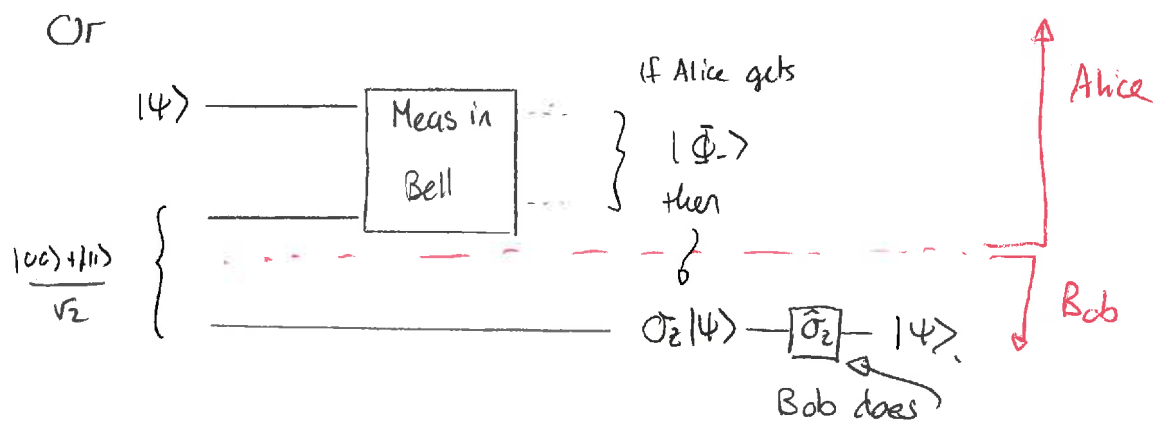 Or
|Ψ⟩
Meas in
Bell
if Alice gets
|Φ̄₋⟩
then
Alice
|00⟩+|11⟩
√2
σ_z|Ψ⟩
σ̂_z
|Ψ⟩.
Bob
Bob does